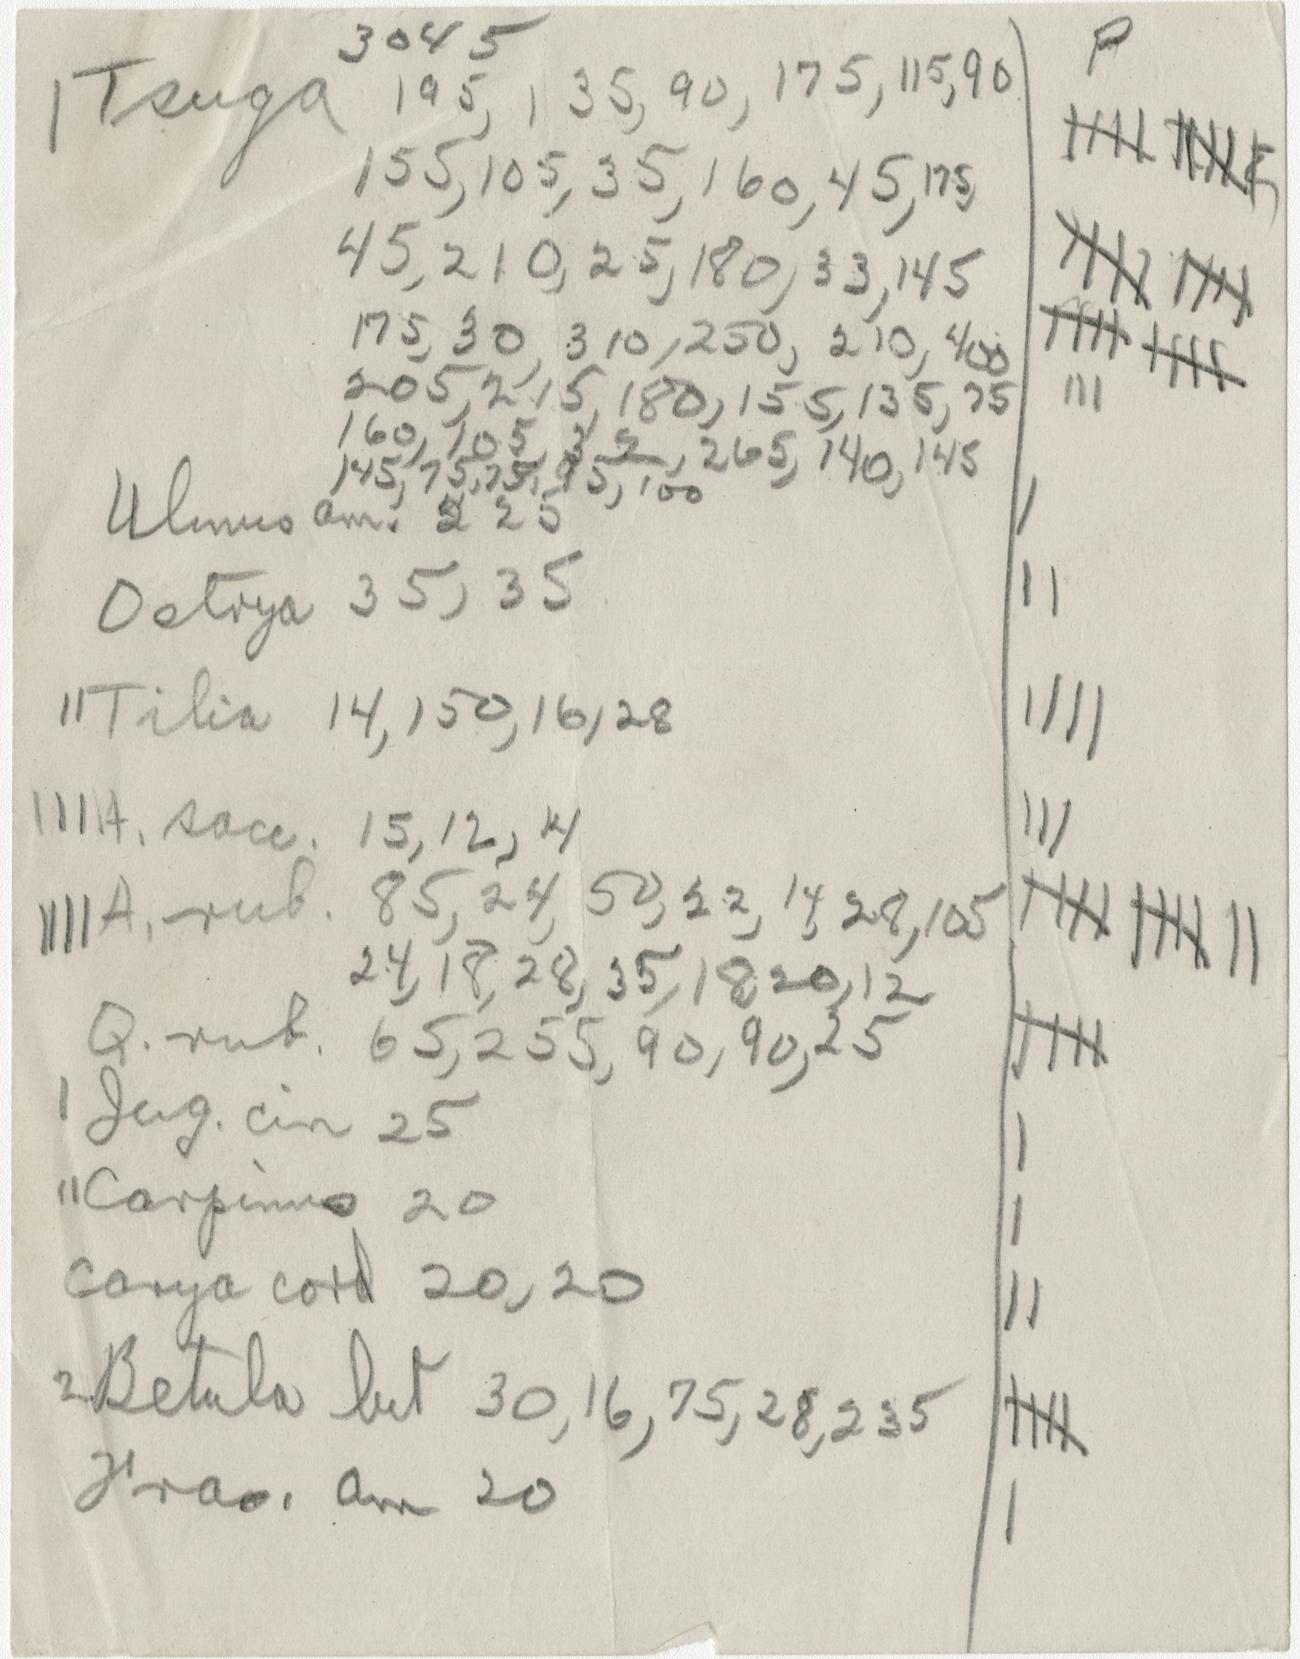 3045 P
| Tsuga 195, 135, 90, 175, 115, 90
155, 105, 35, 160, 45, 175,
45, 210, 25, 180, 33, 145
175, 30, 310, 250, 210, 400
205, 215, 180, 155, 135, 75 |||
160, 105, 265, 140, 145
145, 75, 75, 95, 100
Ulmus am. 225 |
Ostrya 35, 35 ||
|| Tilia 14, 150, 16, 28 ||||
|||| A. sacc. 15, 12, 14 |||
|||| A. rub. 85, 24, 50, 22, 14, 28, 105 |||| |||| ||
24, 18, 28, 35, 18, 20, 12
Q. rub. 65, 255, 90, 90, 25 ||||
| Jug. cin 25 |
|| Carpinus 20 |
Carya cord 20, 20 ||
2 Betula lut 30, 16, 75, 28, 235 ||||
Frax. am 20 |